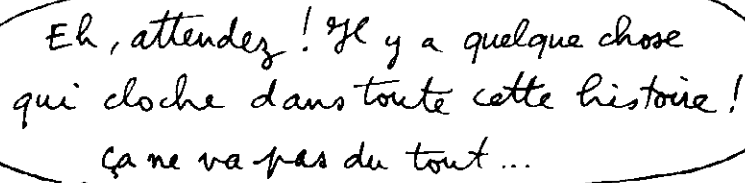 Eh, attendez ! Il y a quelque chose
qui cloche dans toute cette histoire !
ça ne va pas du tout...